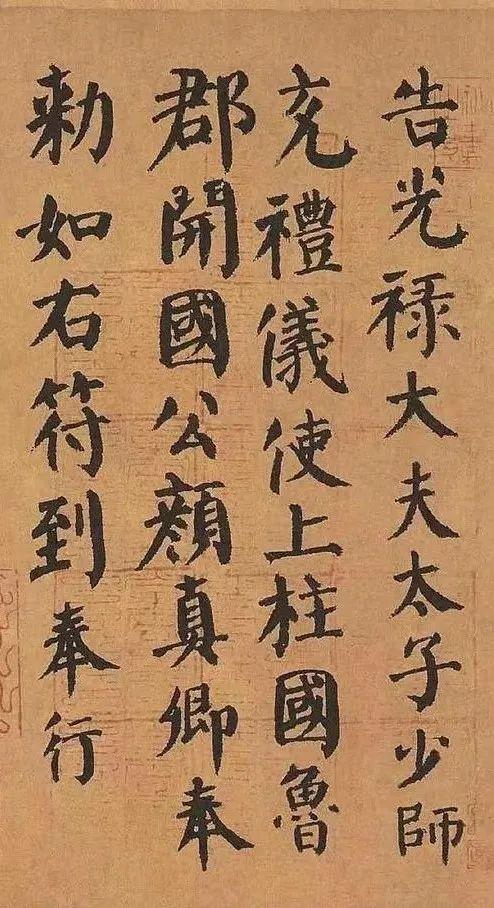 告光禄大夫太子少師
充禮儀使上柱國魯
郡開國公顔真卿奉
勑如右符到奉行